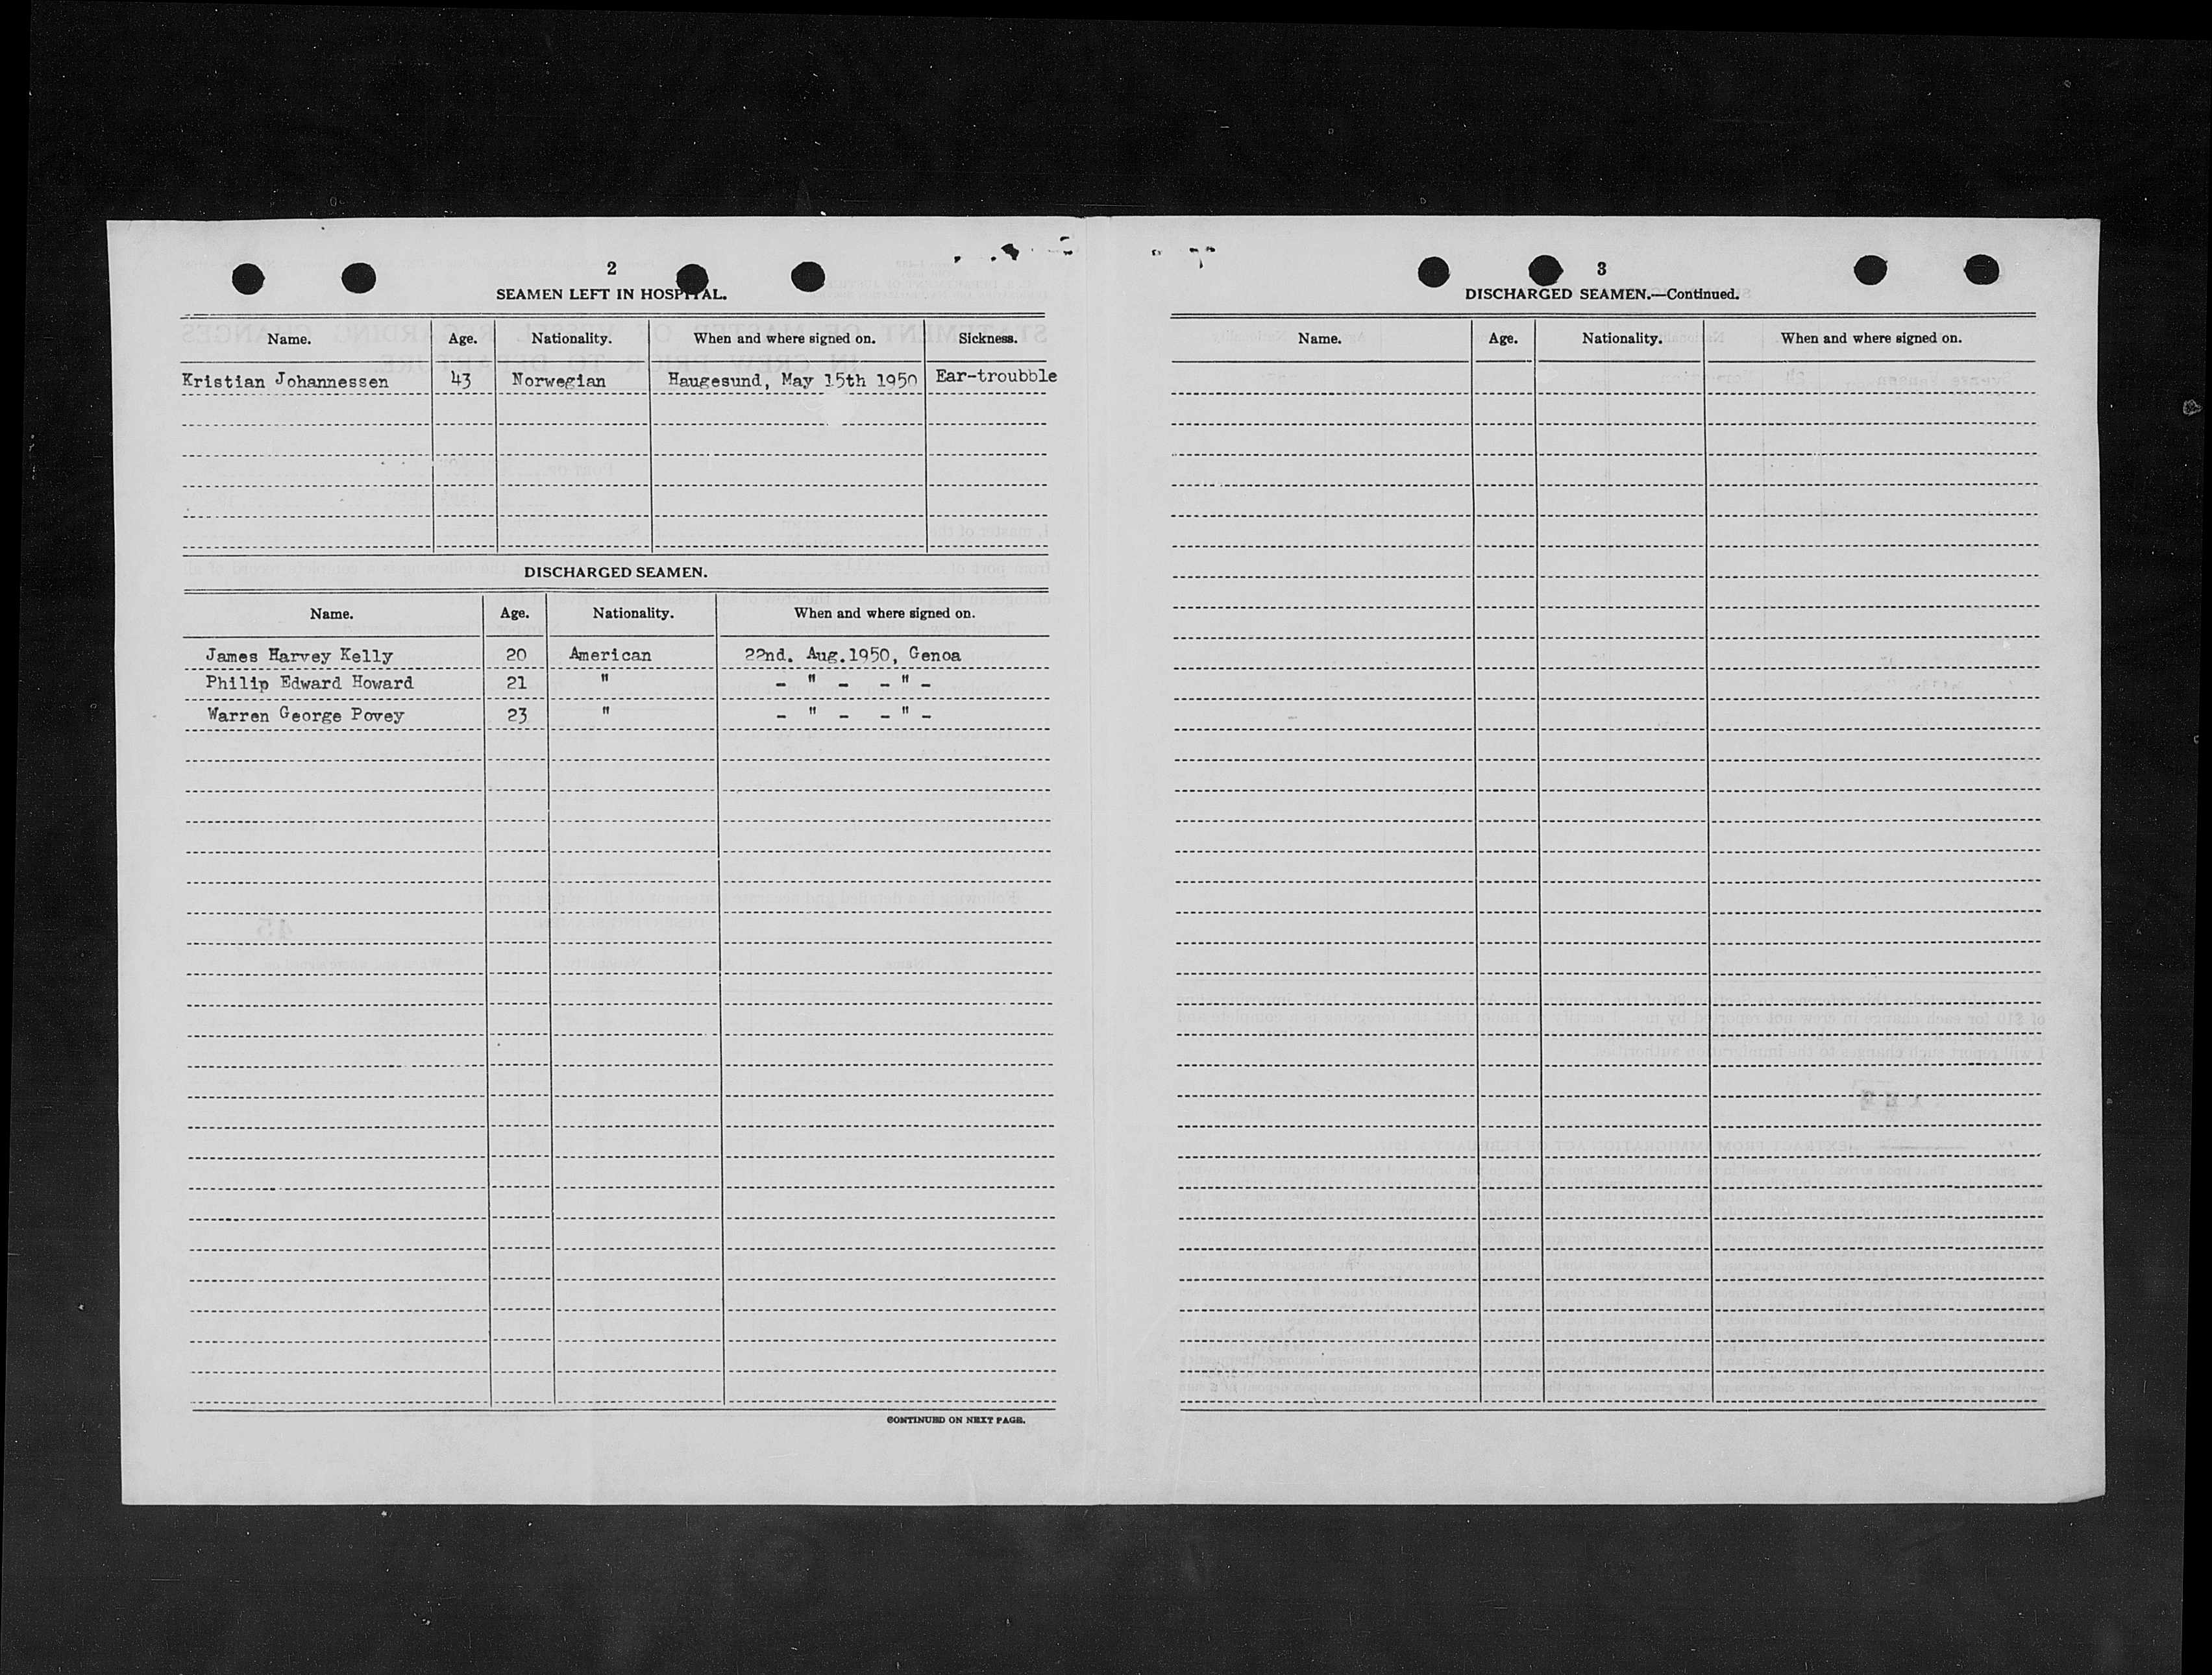 2
SEAMEN LEFT IN HOSPITAL.
Name. Age. Nationality. When and where signed on. Sickness.
Kristian Johannessen 43 Norwegian Haugesund, May 15th 1950 Ear-troubble
DISCHARGED SEAMEN.
Name. Age. Nationality. When and where signed on.
James Harvey Kelly 20 American 22nd. Aug.1950, Genoa
Philip Edward Howard 21 " - " - - " -
Warren George Povey 23 " - " - - " -
CONTINUED ON NEXT PAGE.
3
DISCHARGED SEAMEN.—Continued.
Name. Age. Nationality. When and where signed on.